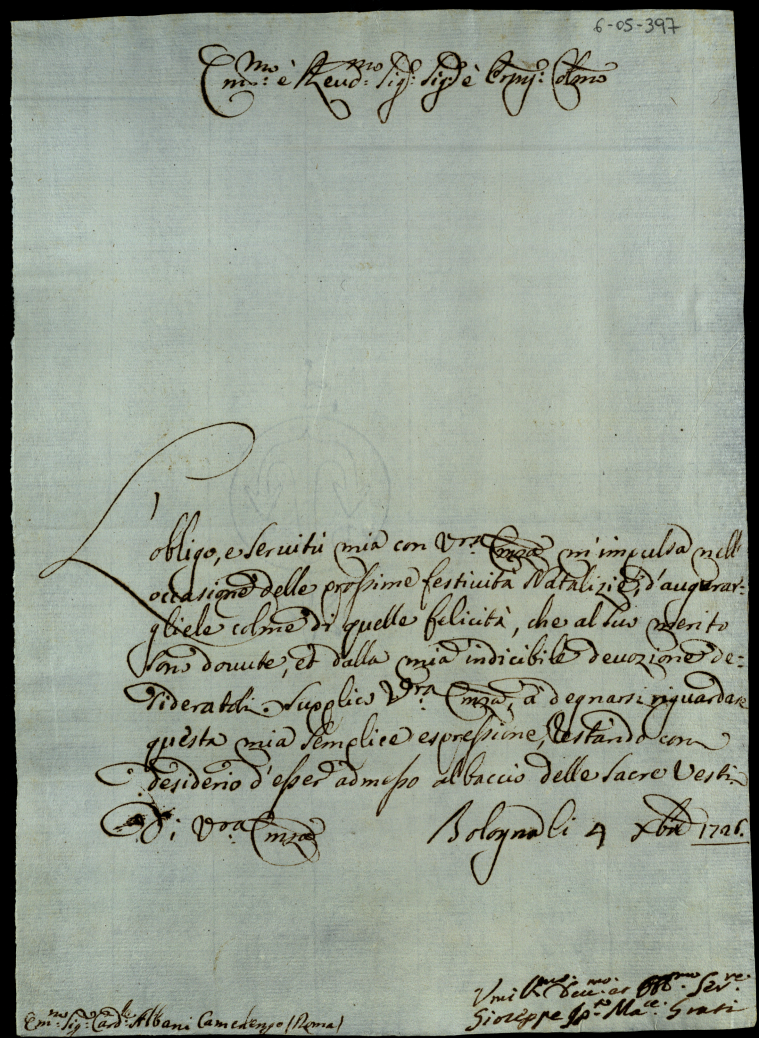 6-05-397
Emo: è Reud:mo Sig:e Sig:e è
L'
obligo, e seruitù mia con Vra: Emza m'impulsa nell'
occasione delle prossime festiuità Natalizie, d'augurar-
gliele colme di quelle felicità, che al suo merito
son douute, et dalla mia indicibile deuozione de=
siderateli. Supplico Vra: Emza, à degnarsi riguardare
questa mia semplice espressione, Restando con
desiderio d'esser admesso al baccio delle Sacre Vesti
Di Vra: Emza Bologna li 4 Xbre 1726.
Umil:mo: Deu:mo: et Obb:mo Ser:re:
Gioseppe
Em:mo Sig:r Card:le Albani Camerlengo (Roma)